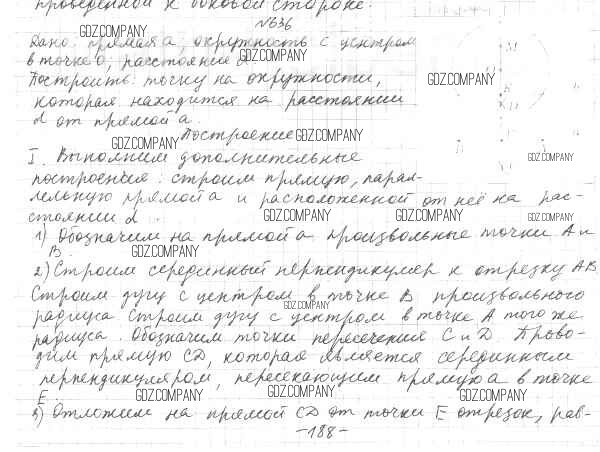 проведенной к боковой стороне.
№636
GDZ.COMPANY
Дано: прямая а, окружность с центром
в точке О, расстояние d. GDZ.COMPANY
Построить: точку на окружности, GDZ.COMPANY
которая находится на расстоянии
d от прямой а.
GDZ.COMPANY Построение GDZ.COMPANY
I. Выполним дополнительные GDZ.COMPANY
построения: строим прямую, парал-
лельную прямой а и расположенной от неё на рас-
стоянии d. GDZ.COMPANY GDZ.COMPANY GDZ.COMPANY
1) Обозначим на прямой а произвольные точки А и
В. GDZ.COMPANY
2) Строим серединный перпендикуляр к отрезку АВ
Строим дугу с центром в точке В произвольного
GDZ.COMPANY
радиуса Строим дугу с центром в точке А того же
радиуса. Обозначим точки пересечения С и D. Прово-
дим прямую CD, которая является серединным
перпендикуляром, пересекающим прямую а в точке
Е. GDZ.COMPANY GDZ.COMPANY GDZ.COMPANY
3) Отложим на прямой CD от точки Е отрезок, рав-
-188-
M
K